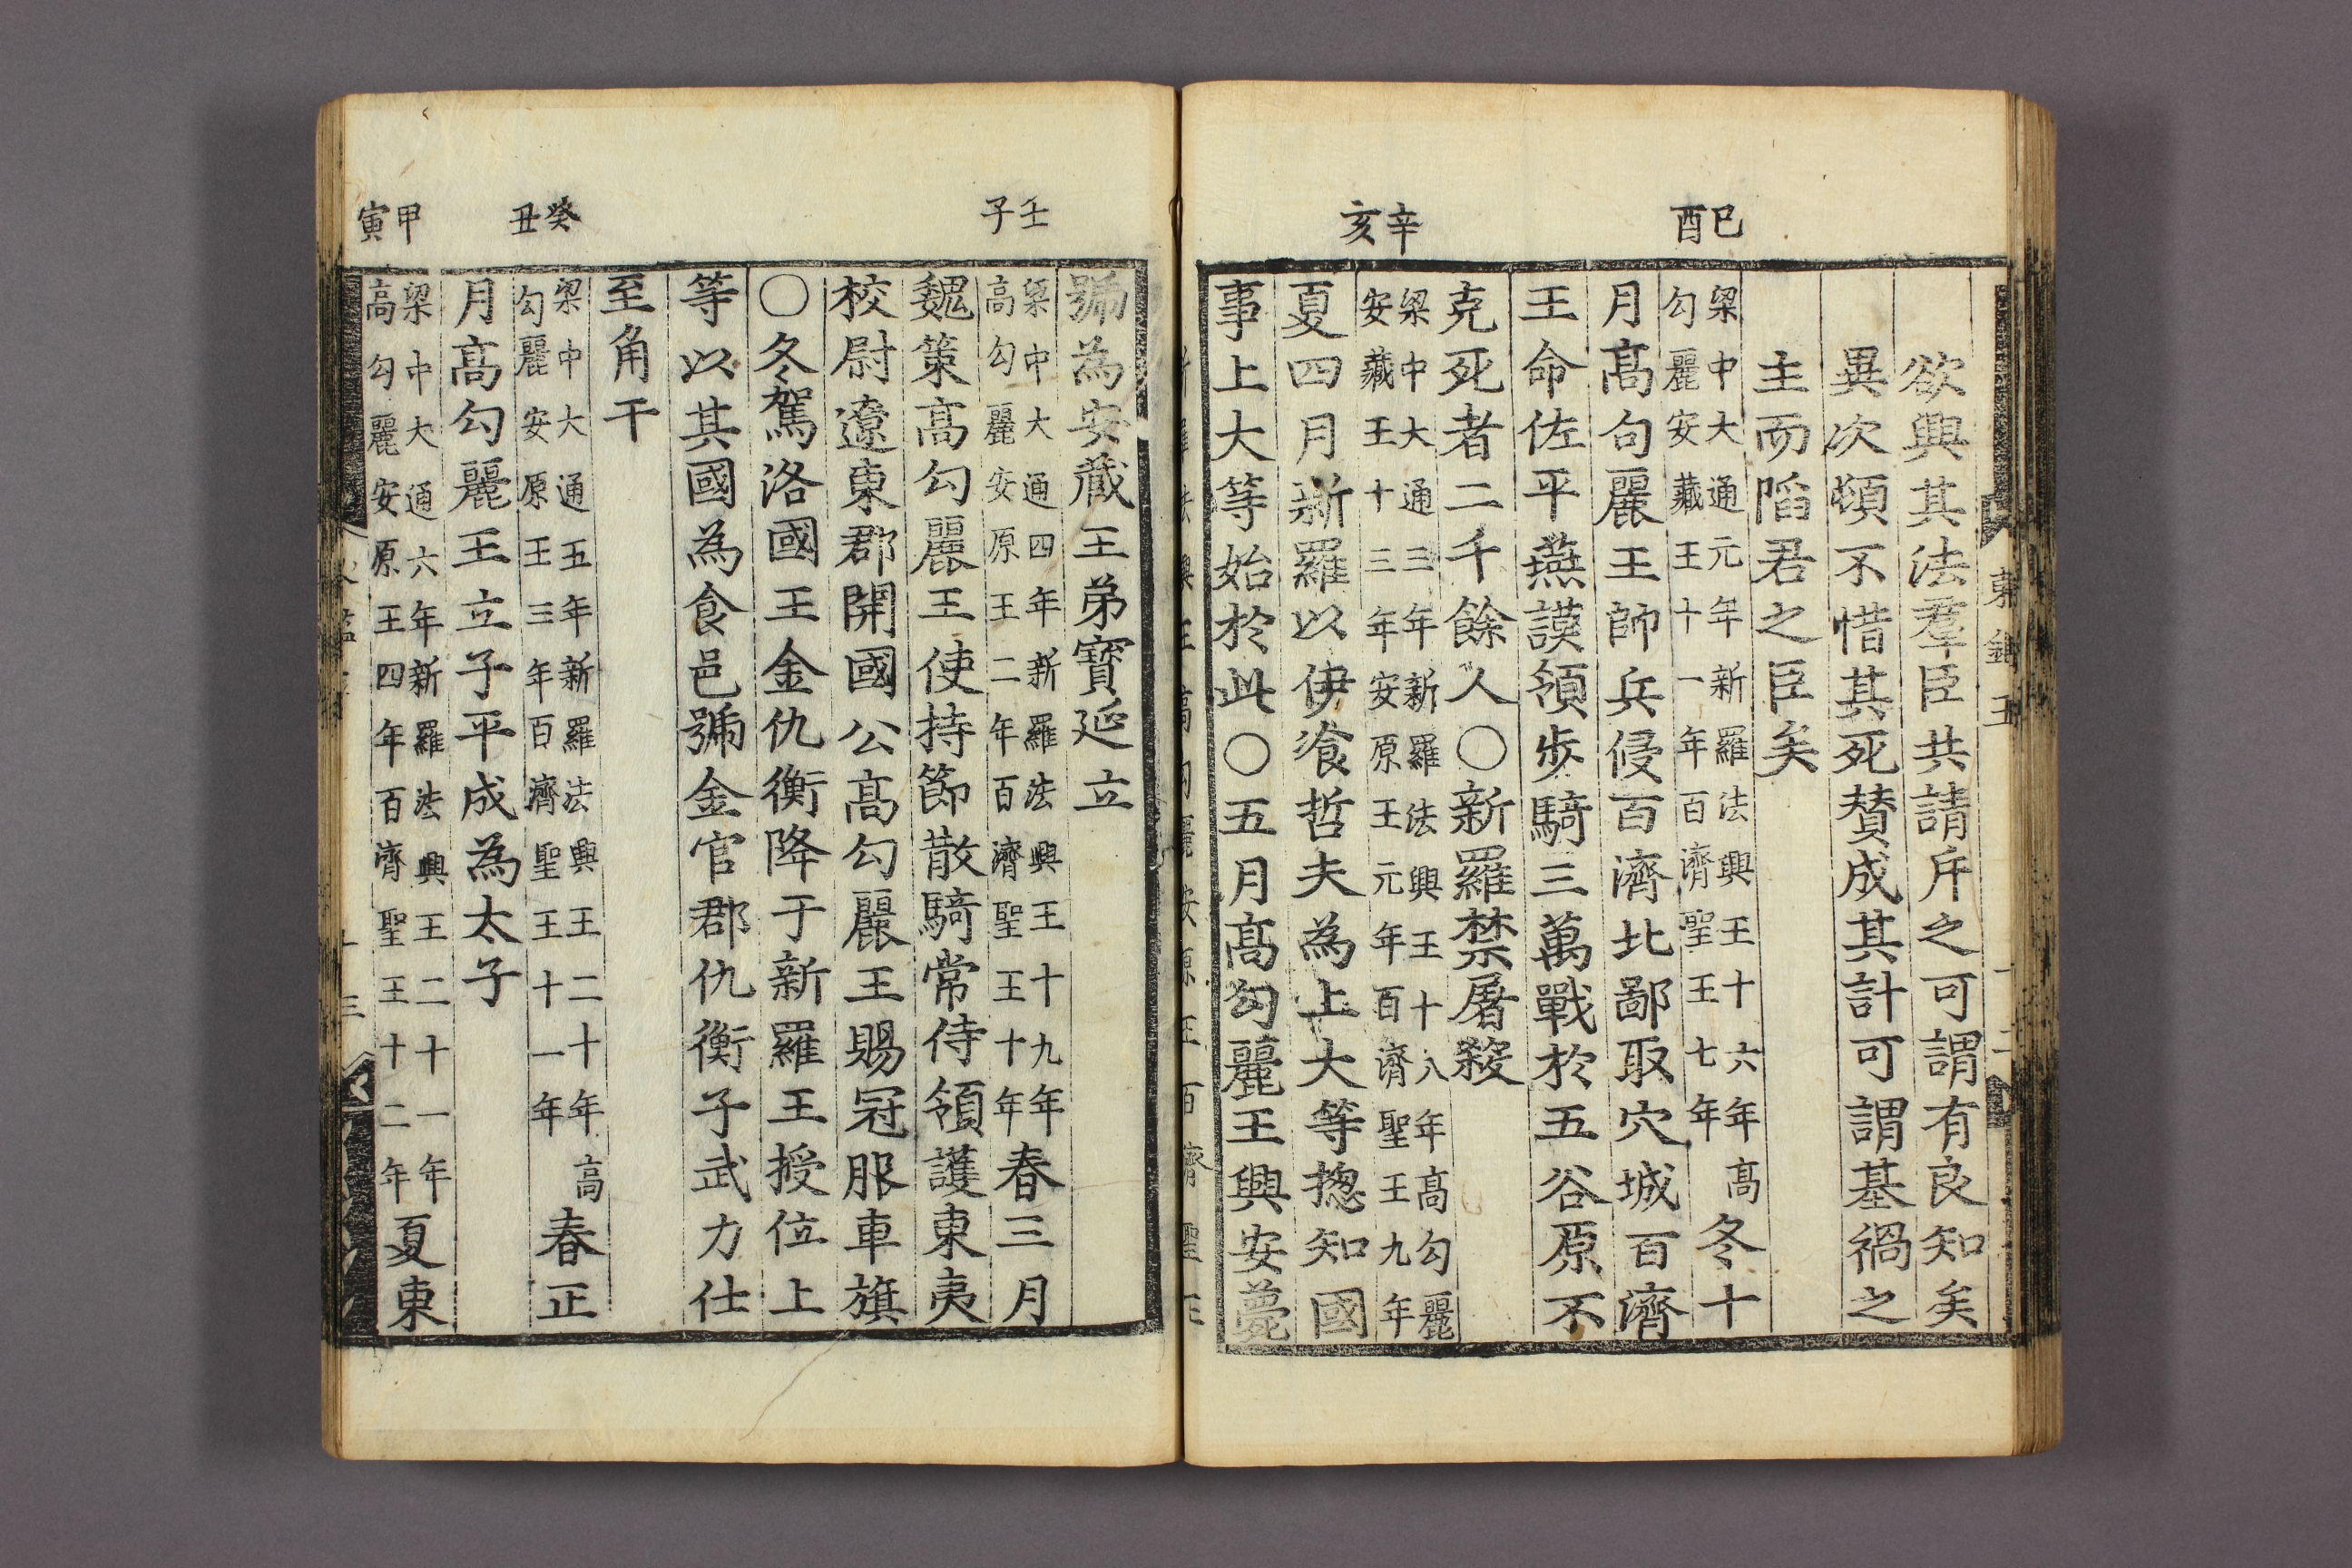 己酉
辛亥
欲興其法羣臣共請斥之可謂有良知矣
異次頓不惜其死賛成其計可謂基禍之
主而陷君之臣矣
梁中大通元年新羅法興王十六年高
勾麗安藏王十一年百濟聖王七年
冬十
月高句麗王帥兵侵百濟北鄙取穴城百濟
王命佐平燕謨領步騎三萬戰於五谷原不
克死者二千餘人〇新羅禁屠殺
梁中大通三年新羅法興王十八年高勾麗
安藏王十三年安原王元年百濟聖王九年
夏四月新羅以伊飡哲夫為上大等揔知國
事上大等始於此〇五月高勾麗王興安薨
壬子
癸丑
甲寅
號為安藏王弟寶延立
梁中大通四年新羅法興王十九年
高勾麗安原王二年百濟聖王十年
春三月
魏策高勾麗王使持節散騎常侍領護東夷
校尉遼東郡開國公高勾麗王賜冠服車旗
〇冬駕洛國王金仇衡降于新羅王授位上
等以其國為食邑號金官郡仇衡子武力仕
至角干
梁中大通五年新羅法興王二十年高
勾麗安原王三年百濟聖王十一年
春正
月高勾麗王立子平成為太子
梁中大通六年新羅法興王二十一年
高勾麗安原王四年百濟聖王十二年
夏東